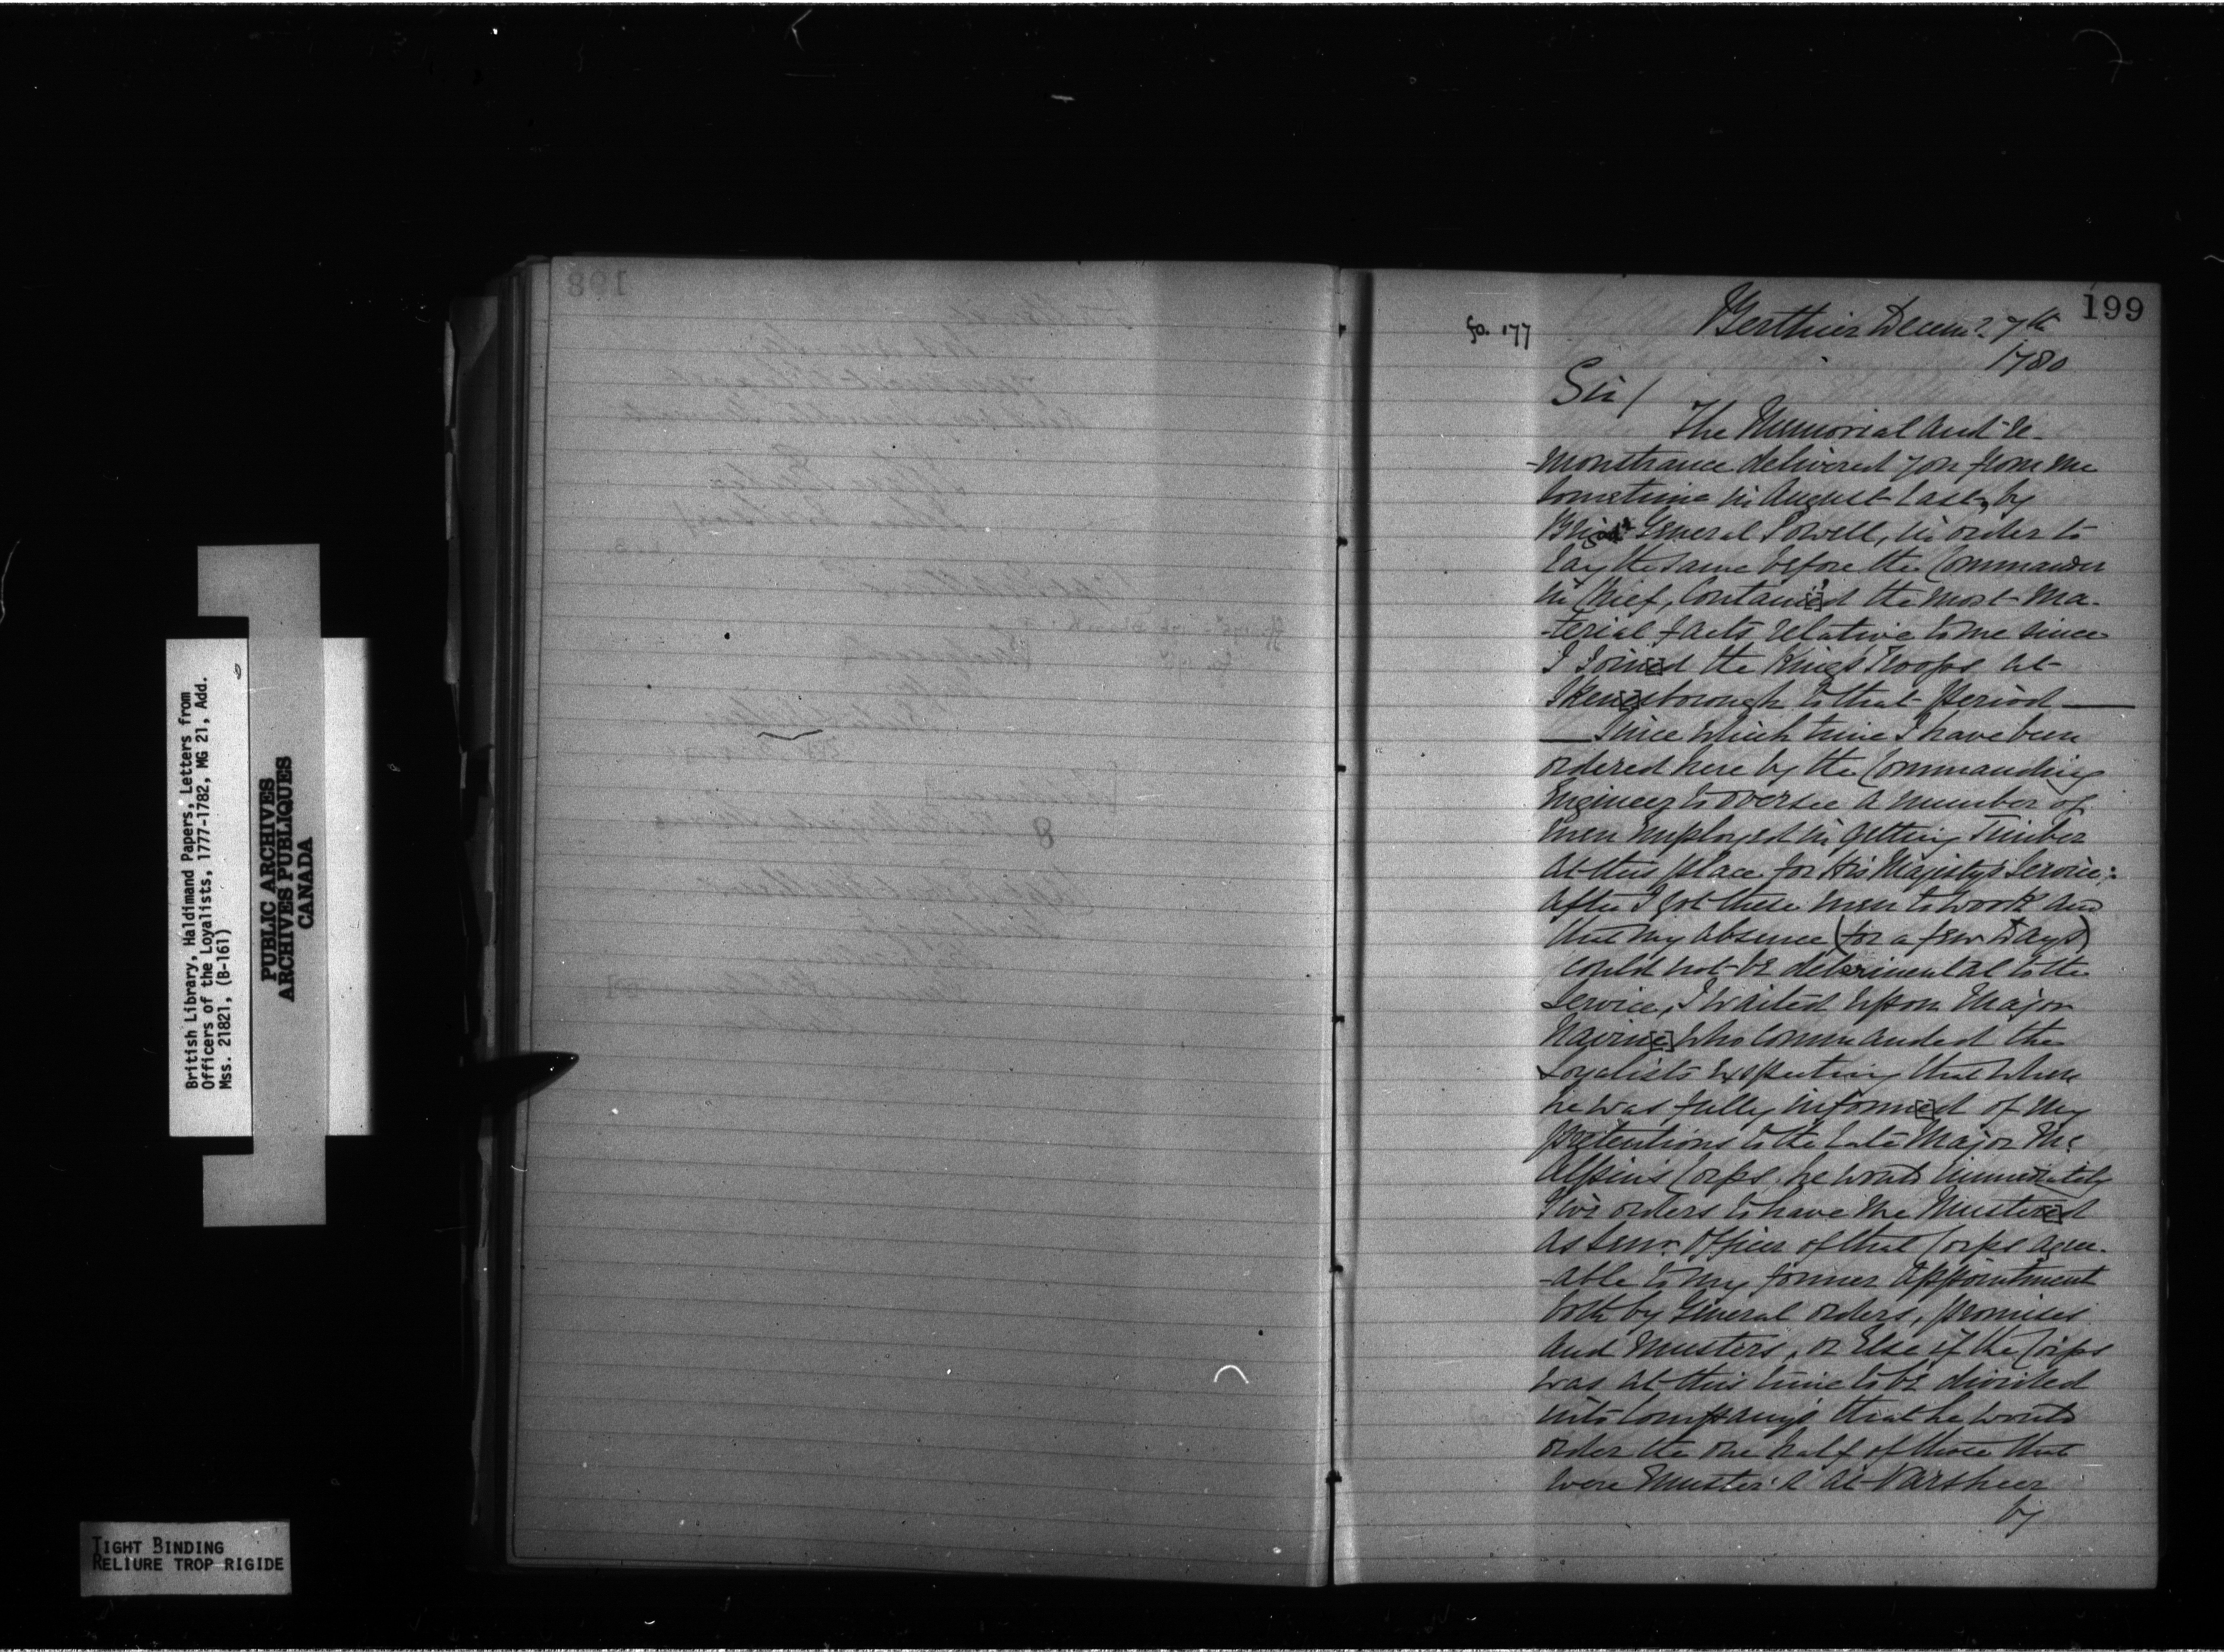 199
fo. 177
Berthier Decem.r 7th
1780
Sir/
The Memorial and re-
-monstrance delivered you from me
sometime in August Last, by
Brigd General Powell, in order to
lay the same before the Commander
in Chief, Contain[e]d the most ma-
-terial facts relative to me since
I Join[e]d the Kings Troops at
Sken[e]sborough to that period —
— Since which time I have been
ordered here by the Commanding
Engineer to oversee a number of
men employed in getting Timber
at this place for His Majesty's Service;
after I got these men to work and
that my absence (for a few Days)
could not be detrimental to the
Service, I waited upon Major
Nairn[e] who commanded the
Loyalists expecting that when
he was fully inform[e]d of my
pretentions to the Late Major Mc
Alpin's Corps, he would immediately
Give orders to have me Muster[e]d
as Senr. Officer of that Corps agree-
-able to my former appointment
both by General orders, promises
and Musters, or Else if the Corps
was at this time to be divided
into Company's that he would
order the one half of those that
were Muster'd at Varsheer
by
British Library, Haldimand Papers, Letters from
Officers of the Loyalists, 1777-1782, MG 21, Add.
Mss. 21821, (B-161)
PUBLIC ARCHIVES
ARCHIVES PUBLIQUES
CANADA
TIGHT BINDING
RELIURE TROP RIGIDE
198